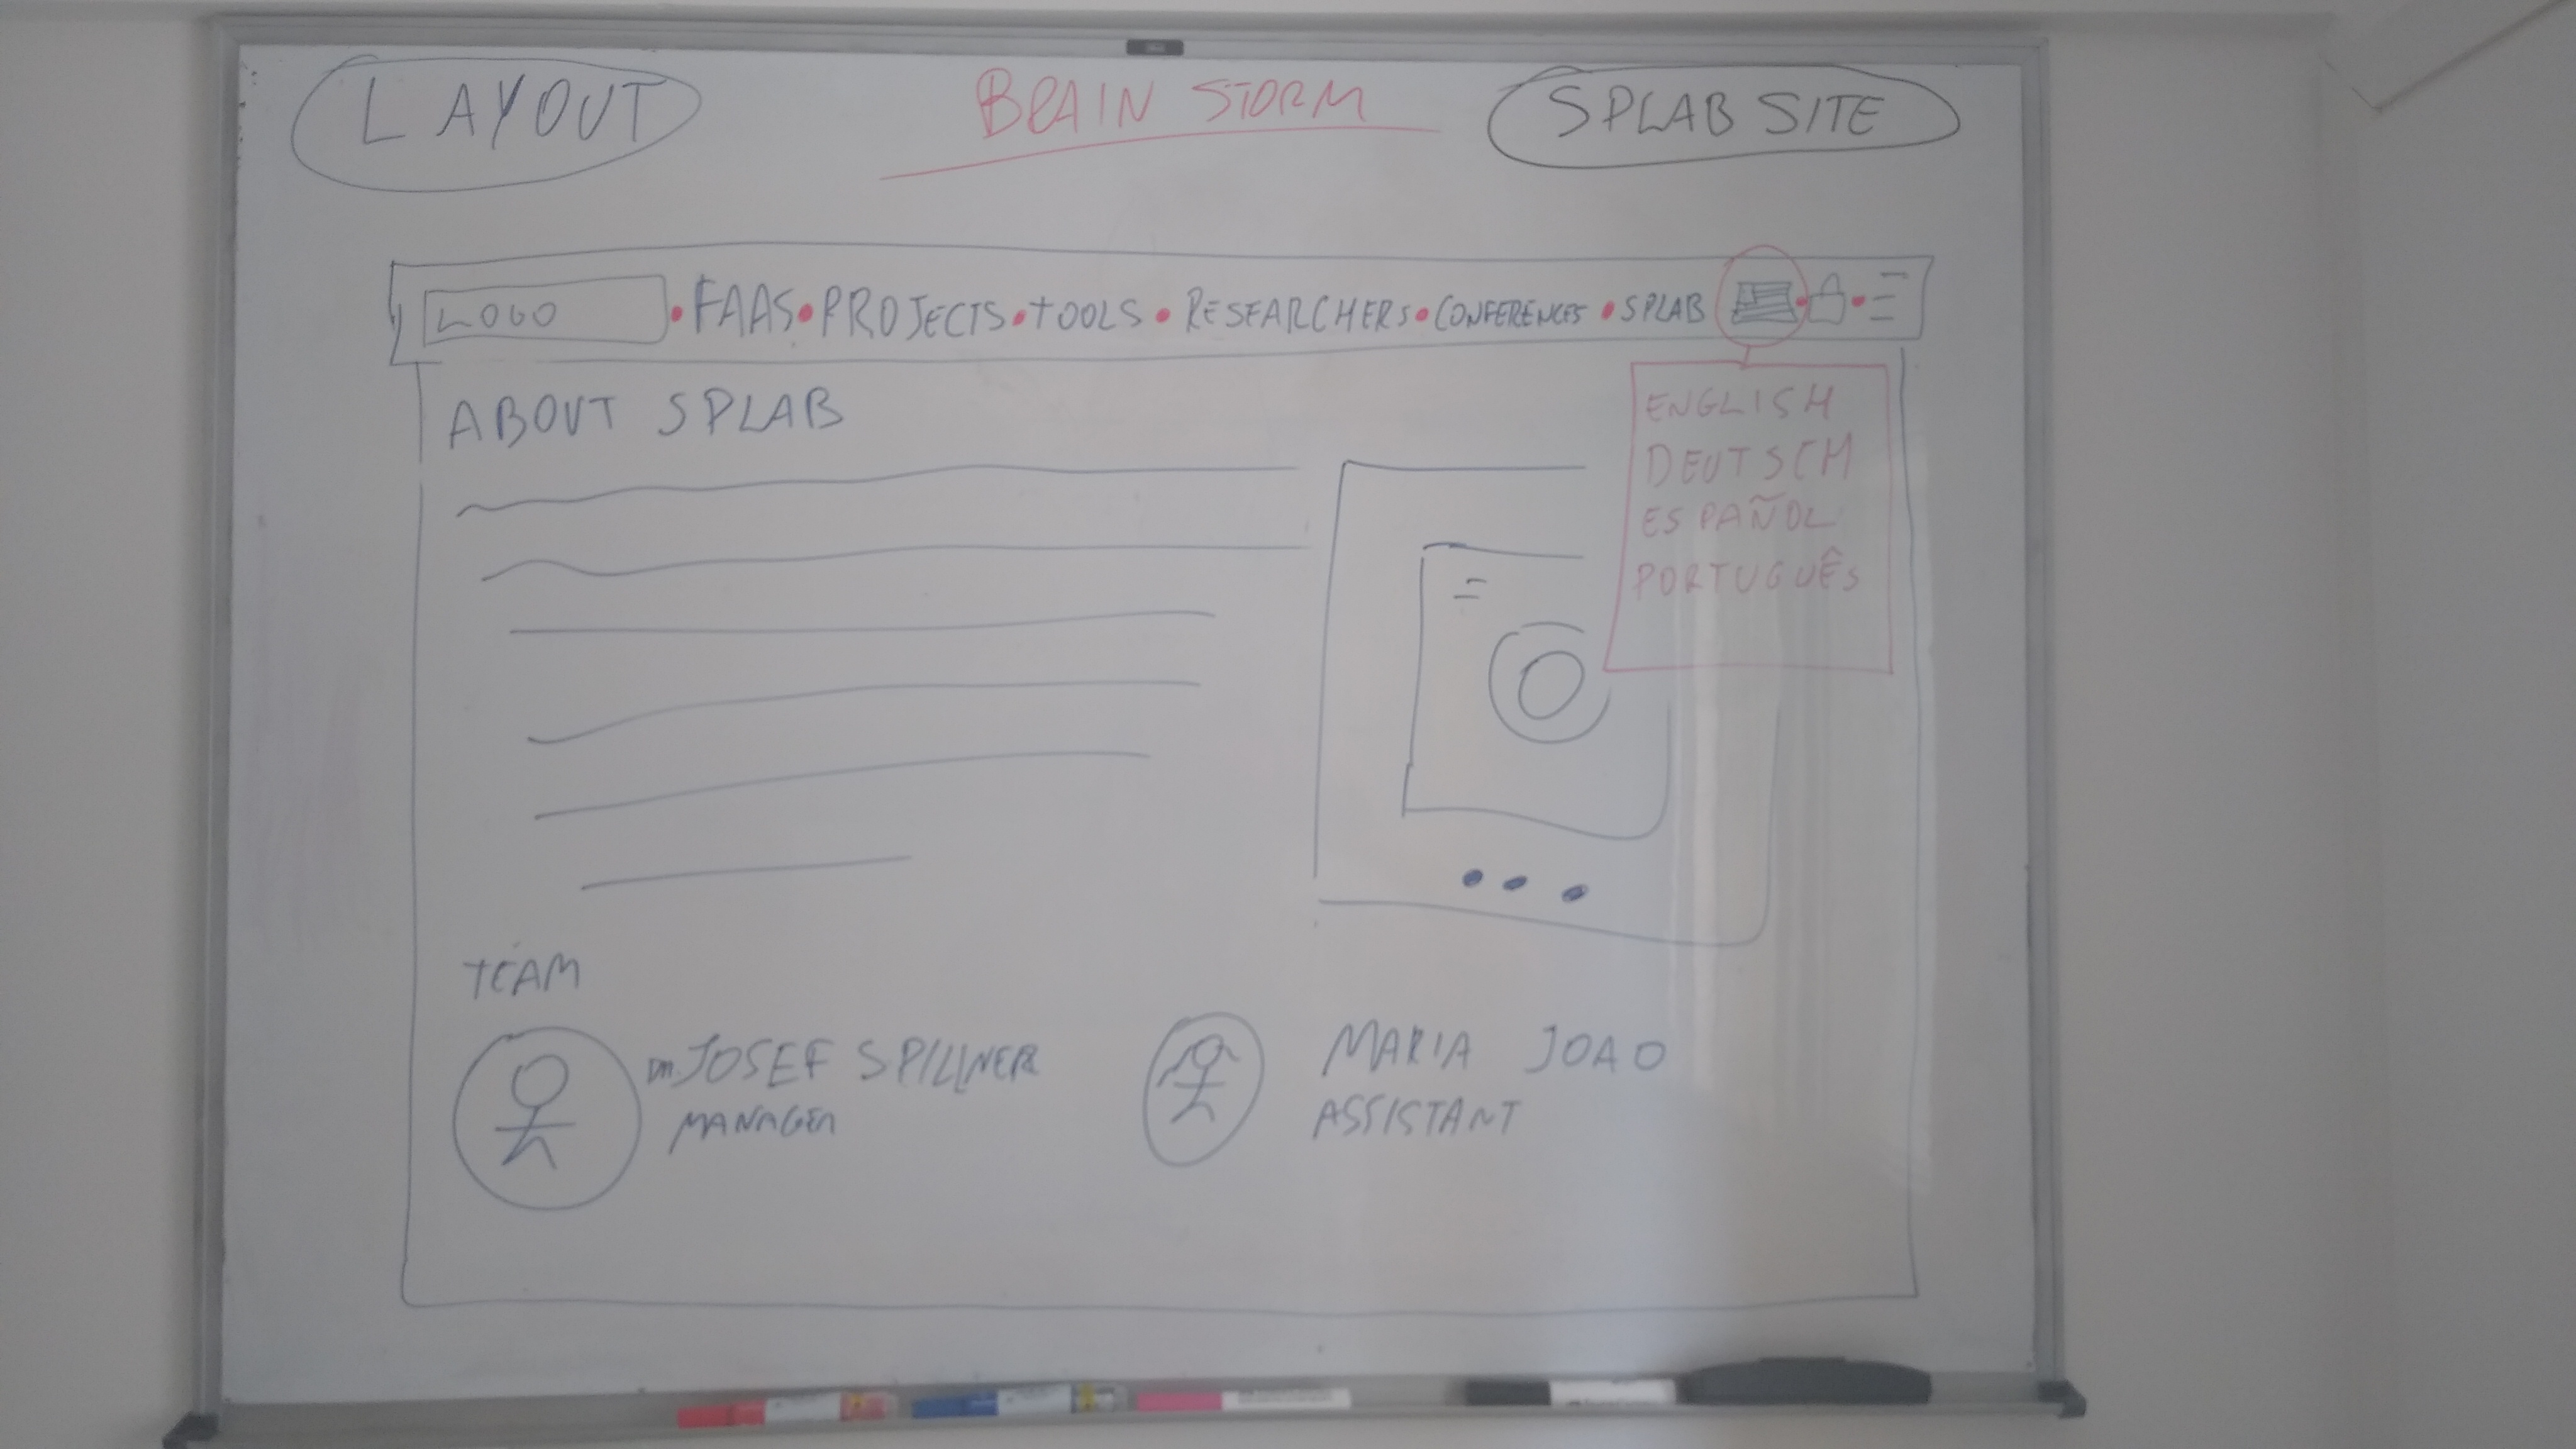 LAYOUT
BRAIN STORM
SPLAB SITE
LOGO • FAAS • PROJECTS • TOOLS • RESEARCHERS • CONFERENCES • SPLAB
ENGLISH
DEUTSCH
ESPAÑOL
PORTUGUÊS
ABOUT SPLAB
TEAM
DR. JOSEF SPILLNER
MANAGER
MARIA JOAO
ASSISTANT